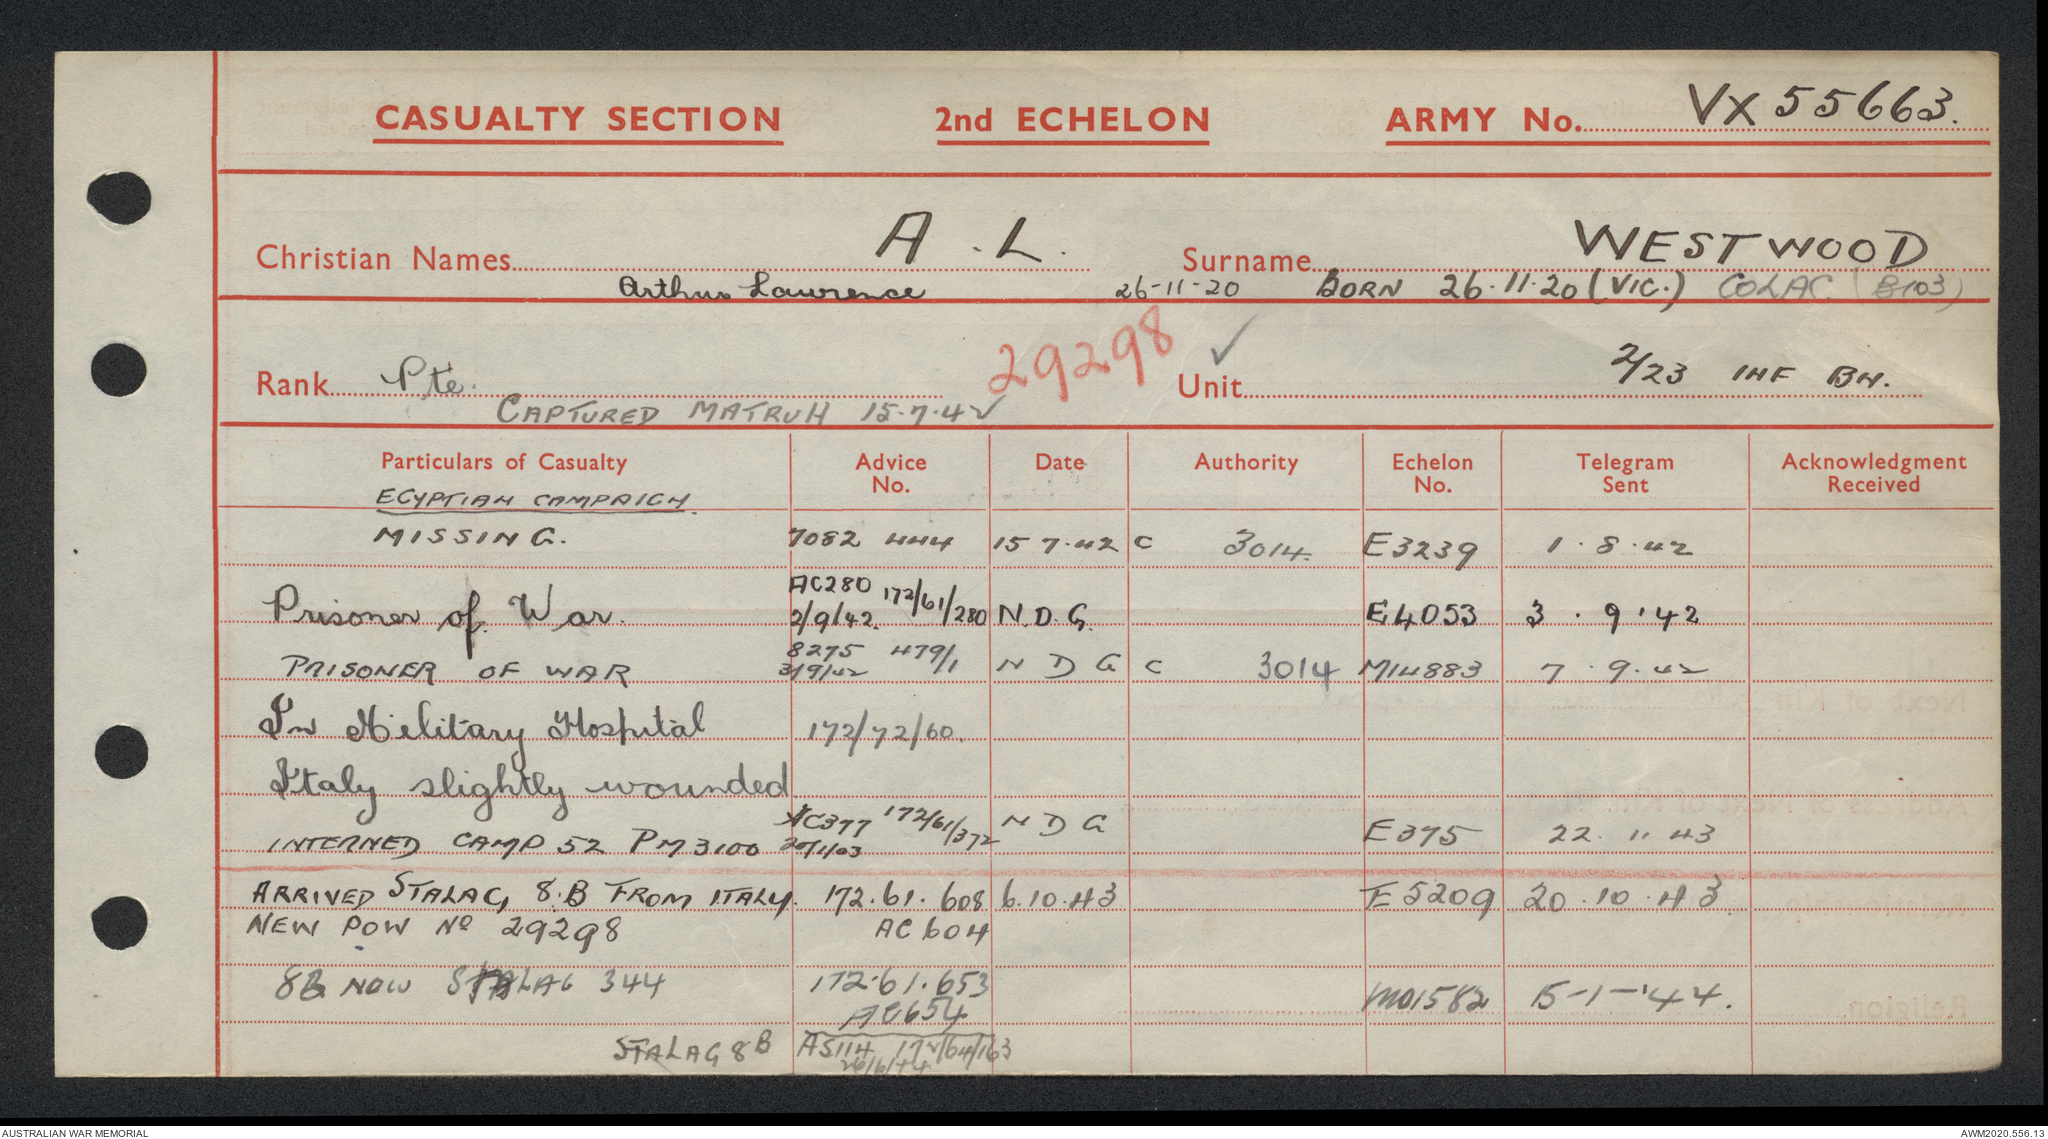 CASUALTY SECTION 2nd ECHELON ARMY No. VX 55663.
Christian Names A. L. Surname WESTWOOD
Arthur Lawrence 26-11-20 BORN 26.11.20 (VIC.) COLAC (B103)
29298
Rank Pte. Unit 2/23 INF BN.
CAPTURED MATRUH 15.7.42
Particulars of Casualty Advice No. Date Authority Echelon No. Telegram Sent Acknowledgment Received
EGYPTIAN CAMPAIGN
MISSING. 7082 444 15 7.42 C 3014. E3239 1.8.42
AC280 172/61/280
Prisoner of War. 2/9/42. N.D.G. E4053 3.9.42
8275 479/1
PRISONER OF WAR 3/9/42 N D G C 3014 M14883 7.9.42
In Military Hospital 172/72/60.
Italy slightly wounded
AC377 172/61/372 N D G
INTERNED CAMP 52 PM 3100 E375 22.11.43
ARRIVED STALAG 8.B FROM ITALY. 172.61.608 6.10.43 E5209 20.10.43
NEW POW No 29298 AC604
8B NOW STALAG 344 172.61.653 M01582 15-1-'44.
AC654
STALAG 8B AS114 172/64/163
26/6/44
AUSTRALIAN WAR MEMORIAL AWM2020.556.13